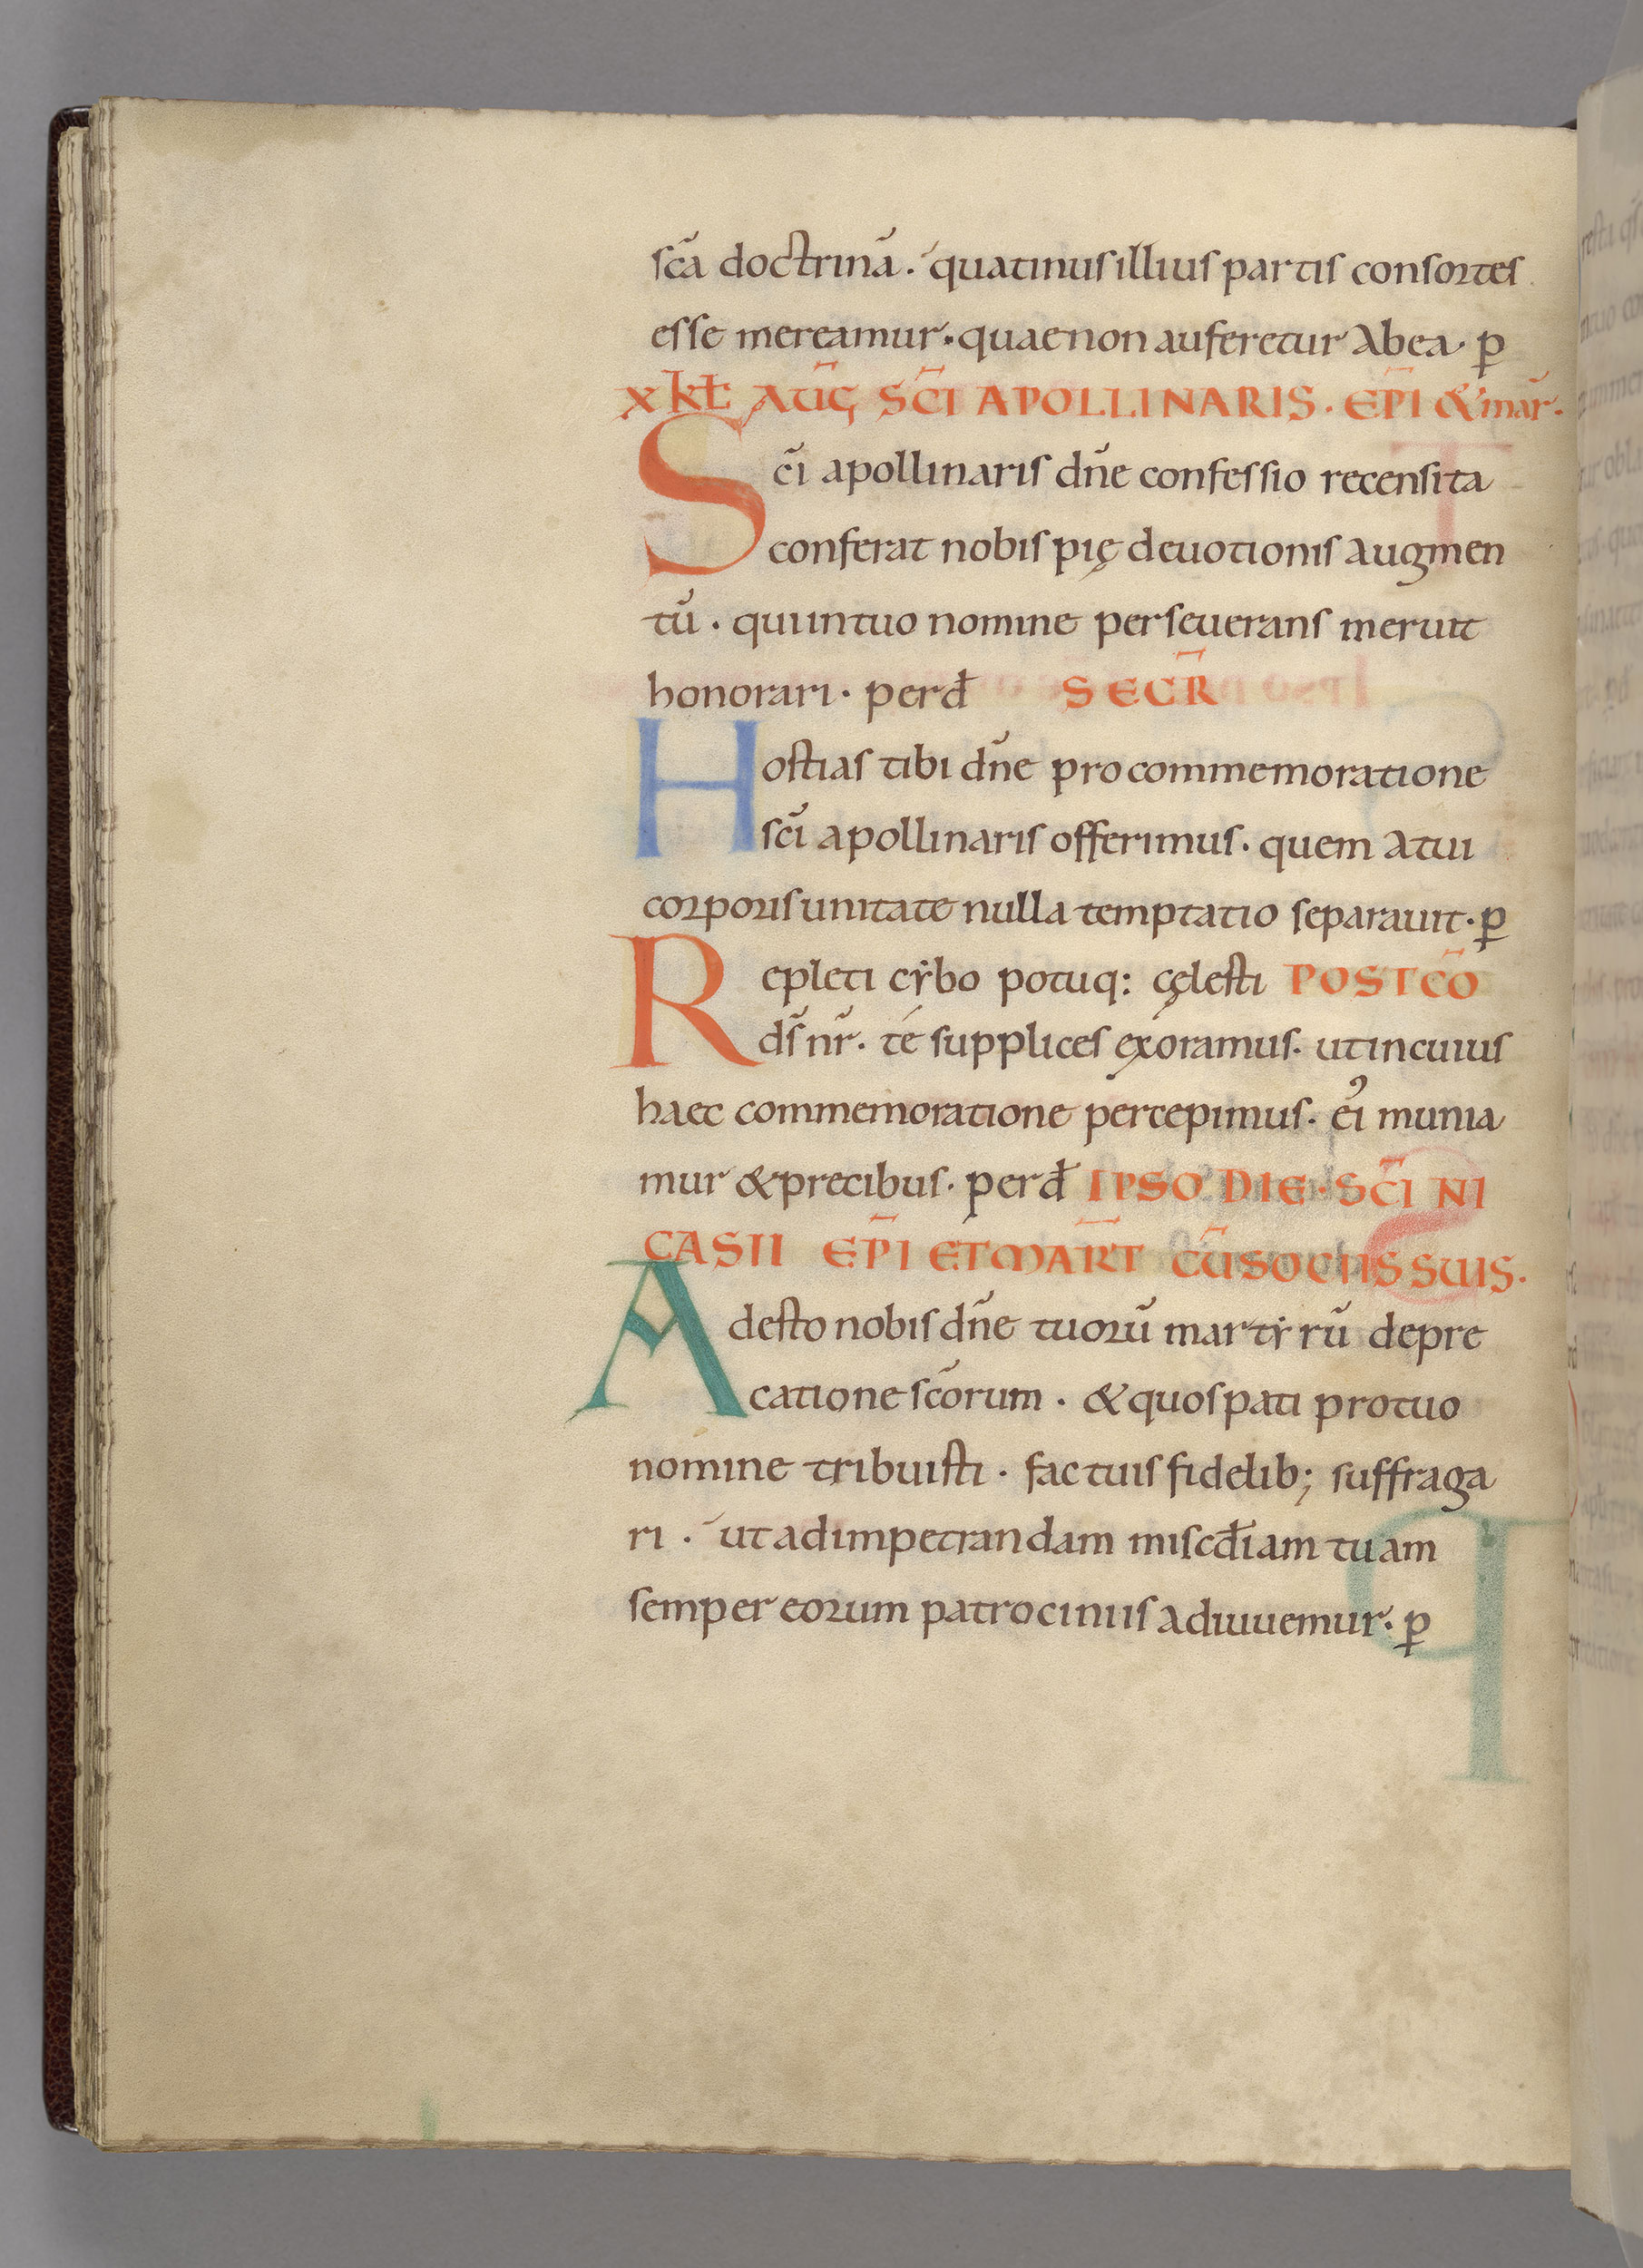 sc̄a doctrinā. quatinus illius partis consortes
esse mereamur. quae non auferetur ab ea. p̄
X Kƚ AUḠ SC̄I APOLLINARIS. EP̄I & mar̄.
Sc̄i apollinaris dn̄e confessio recensita
conferat nobis pię deuotionis augmen
tū. qui in tuo nomine perseuerans meruit
honorari. per đ SECR̄
Hostias tibi dn̄e pro commemoratione
sc̄i apollinaris offerimus. quem a tui
corporis unitate nulla temptatio separauit. p̄
Repleti cẏbo potuq: cęlesti POSTCŌ
ds̄ nr̄. té supplices exoramus. ut in cuius
haec commemoratione percepimus. ei᾽ munia
mur & precibus. per đ IPSO DIE. SC̄I NI
CASII EP̄I ET MAR̄T CŪ SOCIIS SUIS.
Adesto nobis dn̄e tuorū martẏrū depre
catione sc̄orum. & quos pati pro tuo
nomine tribuisti. fac tuis fidelib; suffraga
ri. ut ad impetrandam misc̄điam tuam
semper eorum patrociniis adiuuemur. p̄